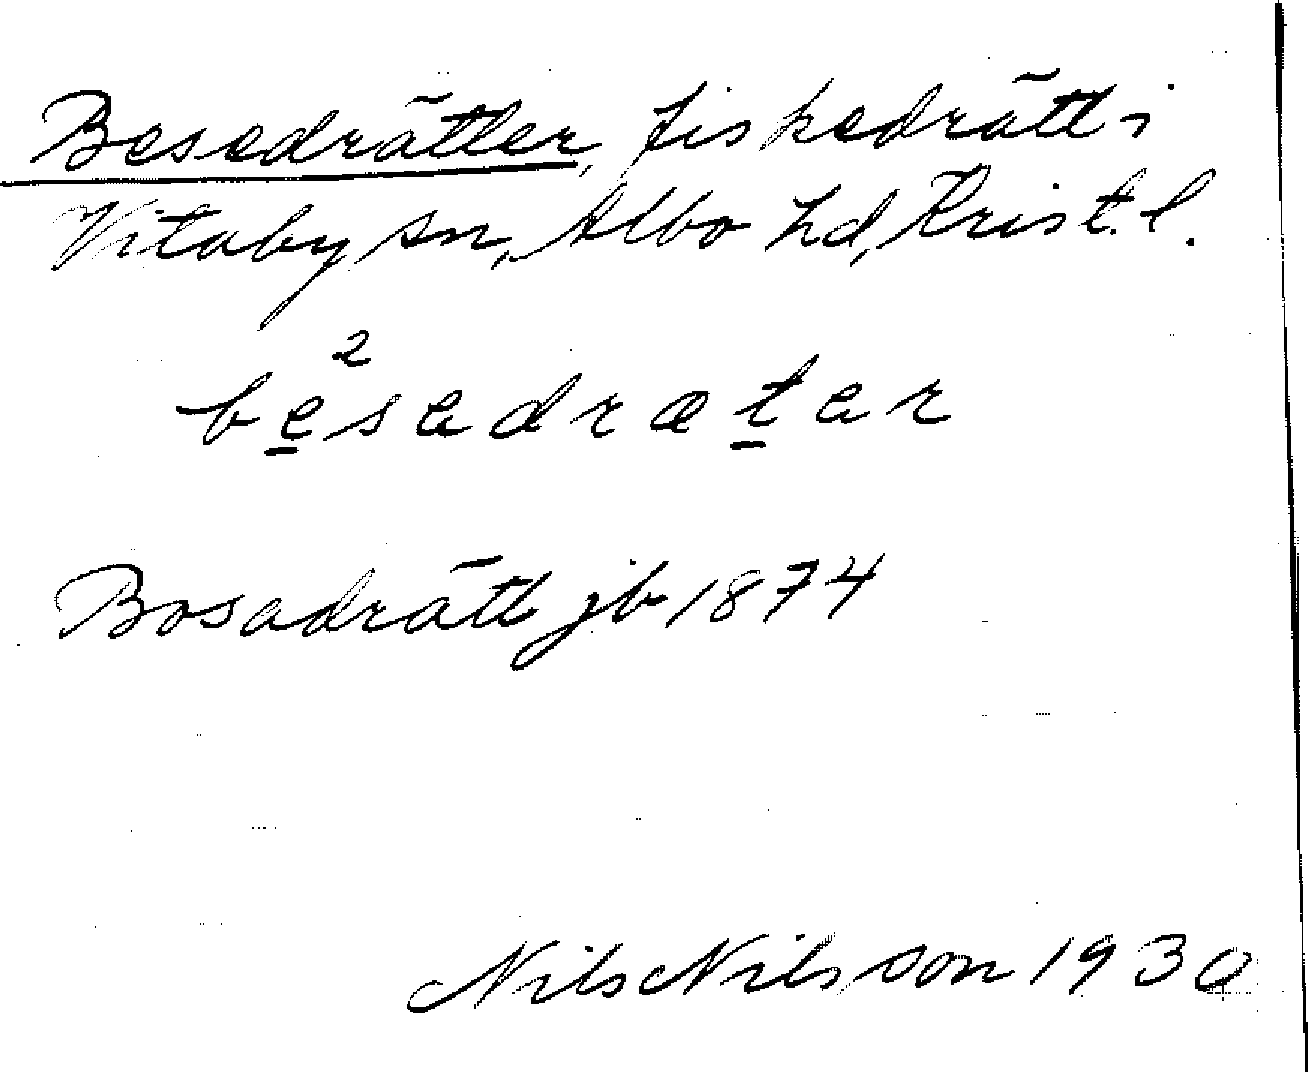 Besedrätter, fiskedrätt i
Vitaby sn, Albo hd, Krist. l.
2
besedræter
Bosadrätt jb 1874
Nils Nilsson 1930